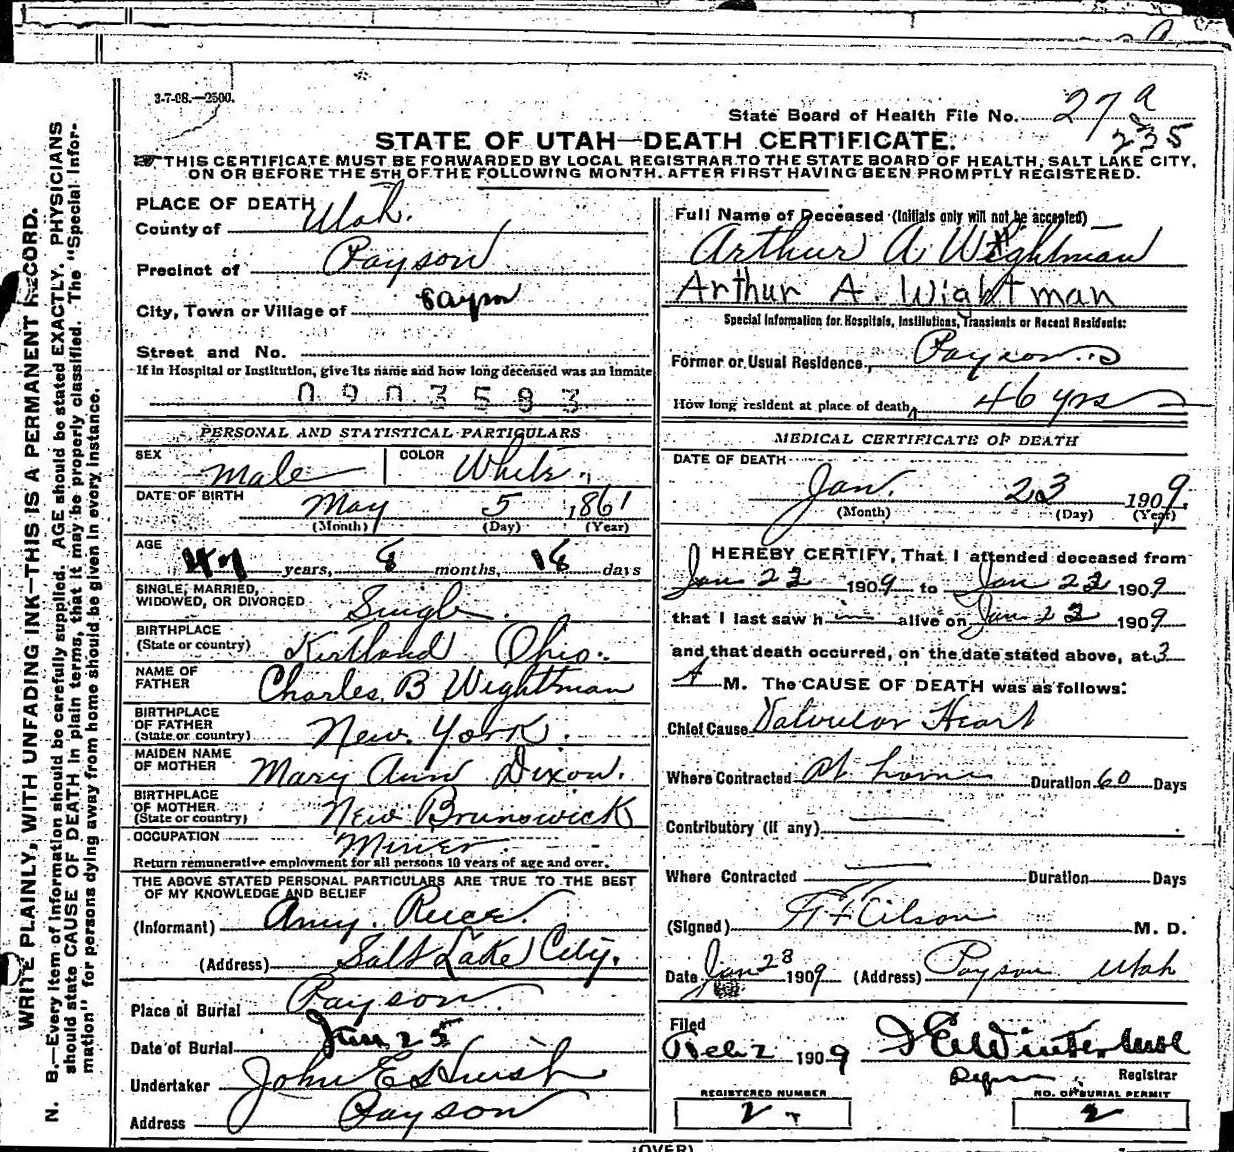 3-7-08.—2500.
State Board of Health File No. 27 a
235
STATE OF UTAH—DEATH CERTIFICATE.
THIS CERTIFICATE MUST BE FORWARDED BY LOCAL REGISTRAR TO THE STATE BOARD OF HEALTH, SALT LAKE CITY,
ON OR BEFORE THE 5TH OF THE FOLLOWING MONTH. AFTER FIRST HAVING BEEN PROMPTLY REGISTERED.
WRITE PLAINLY, WITH UNFADING INK—THIS IS A PERMANENT RECORD.
N. B.—Every item of information should be carefully supplied. AGE should be stated EXACTLY. PHYSICIANS
should state CAUSE OF DEATH in plain terms, that it may be properly classified. The "Special Infor-
mation" for persons dying away from home should be given in every instance.
PLACE OF DEATH
County of Utah.
Precinct of Payson
City, Town or Village of Payson
Street and No.
If in Hospital or Institution, give its name and how long deceased was an inmate
0903583
PERSONAL AND STATISTICAL PARTICULARS
SEX Male COLOR White
DATE OF BIRTH May 5 1861
(Month) (Day) (Year)
AGE 47 years, 8 months, 18 days
SINGLE, MARRIED,
WIDOWED, OR DIVORCED Single
BIRTHPLACE
(State or country) Kirtland Ohio.
NAME OF
FATHER Charles B Wightman
BIRTHPLACE
OF FATHER
(State or country) New York.
MAIDEN NAME
OF MOTHER Mary Ann Dixon.
BIRTHPLACE
OF MOTHER
(State or country) New Brunswick
OCCUPATION Miner
Return remunerative employment for all persons 10 years of age and over.
THE ABOVE STATED PERSONAL PARTICULARS ARE TRUE TO THE BEST
OF MY KNOWLEDGE AND BELIEF
(Informant) Amy
(Address) Salt Lake City.
Place of Burial Payson
Date of Burial Jan 25
Undertaker John E Hurst
Address Payson
Full Name of Deceased (Initials only will not be accepted)
Arthur A Wightman
Arthur A. Wightman
Special Information for Hospitals, Institutions, Transients or Recent Residents:
Former or Usual Residence, Payson
How long resident at place of death, 46 yrs
MEDICAL CERTIFICATE OF DEATH
DATE OF DEATH
Jan. 23 1909.
(Month) (Day) (Year)
I HEREBY CERTIFY, That I attended deceased from
Jan 23 1909 to Jan 23 1909
that I last saw him alive on Jan 23 1909
and that death occurred, on the date stated above, at 3
A M. The CAUSE OF DEATH was as follows:
Chief Cause Valvular Heart
Where Contracted At home Duration 60 Days
Contributory (if any)
Where Contracted Duration Days
(Signed) M. D.
Date Jan 28 1909 (Address) Payson Utah
Filed
Feb 2 1909
Registrar
REGISTERED NUMBER
2
NO. OF BURIAL PERMIT
2
(OVER)